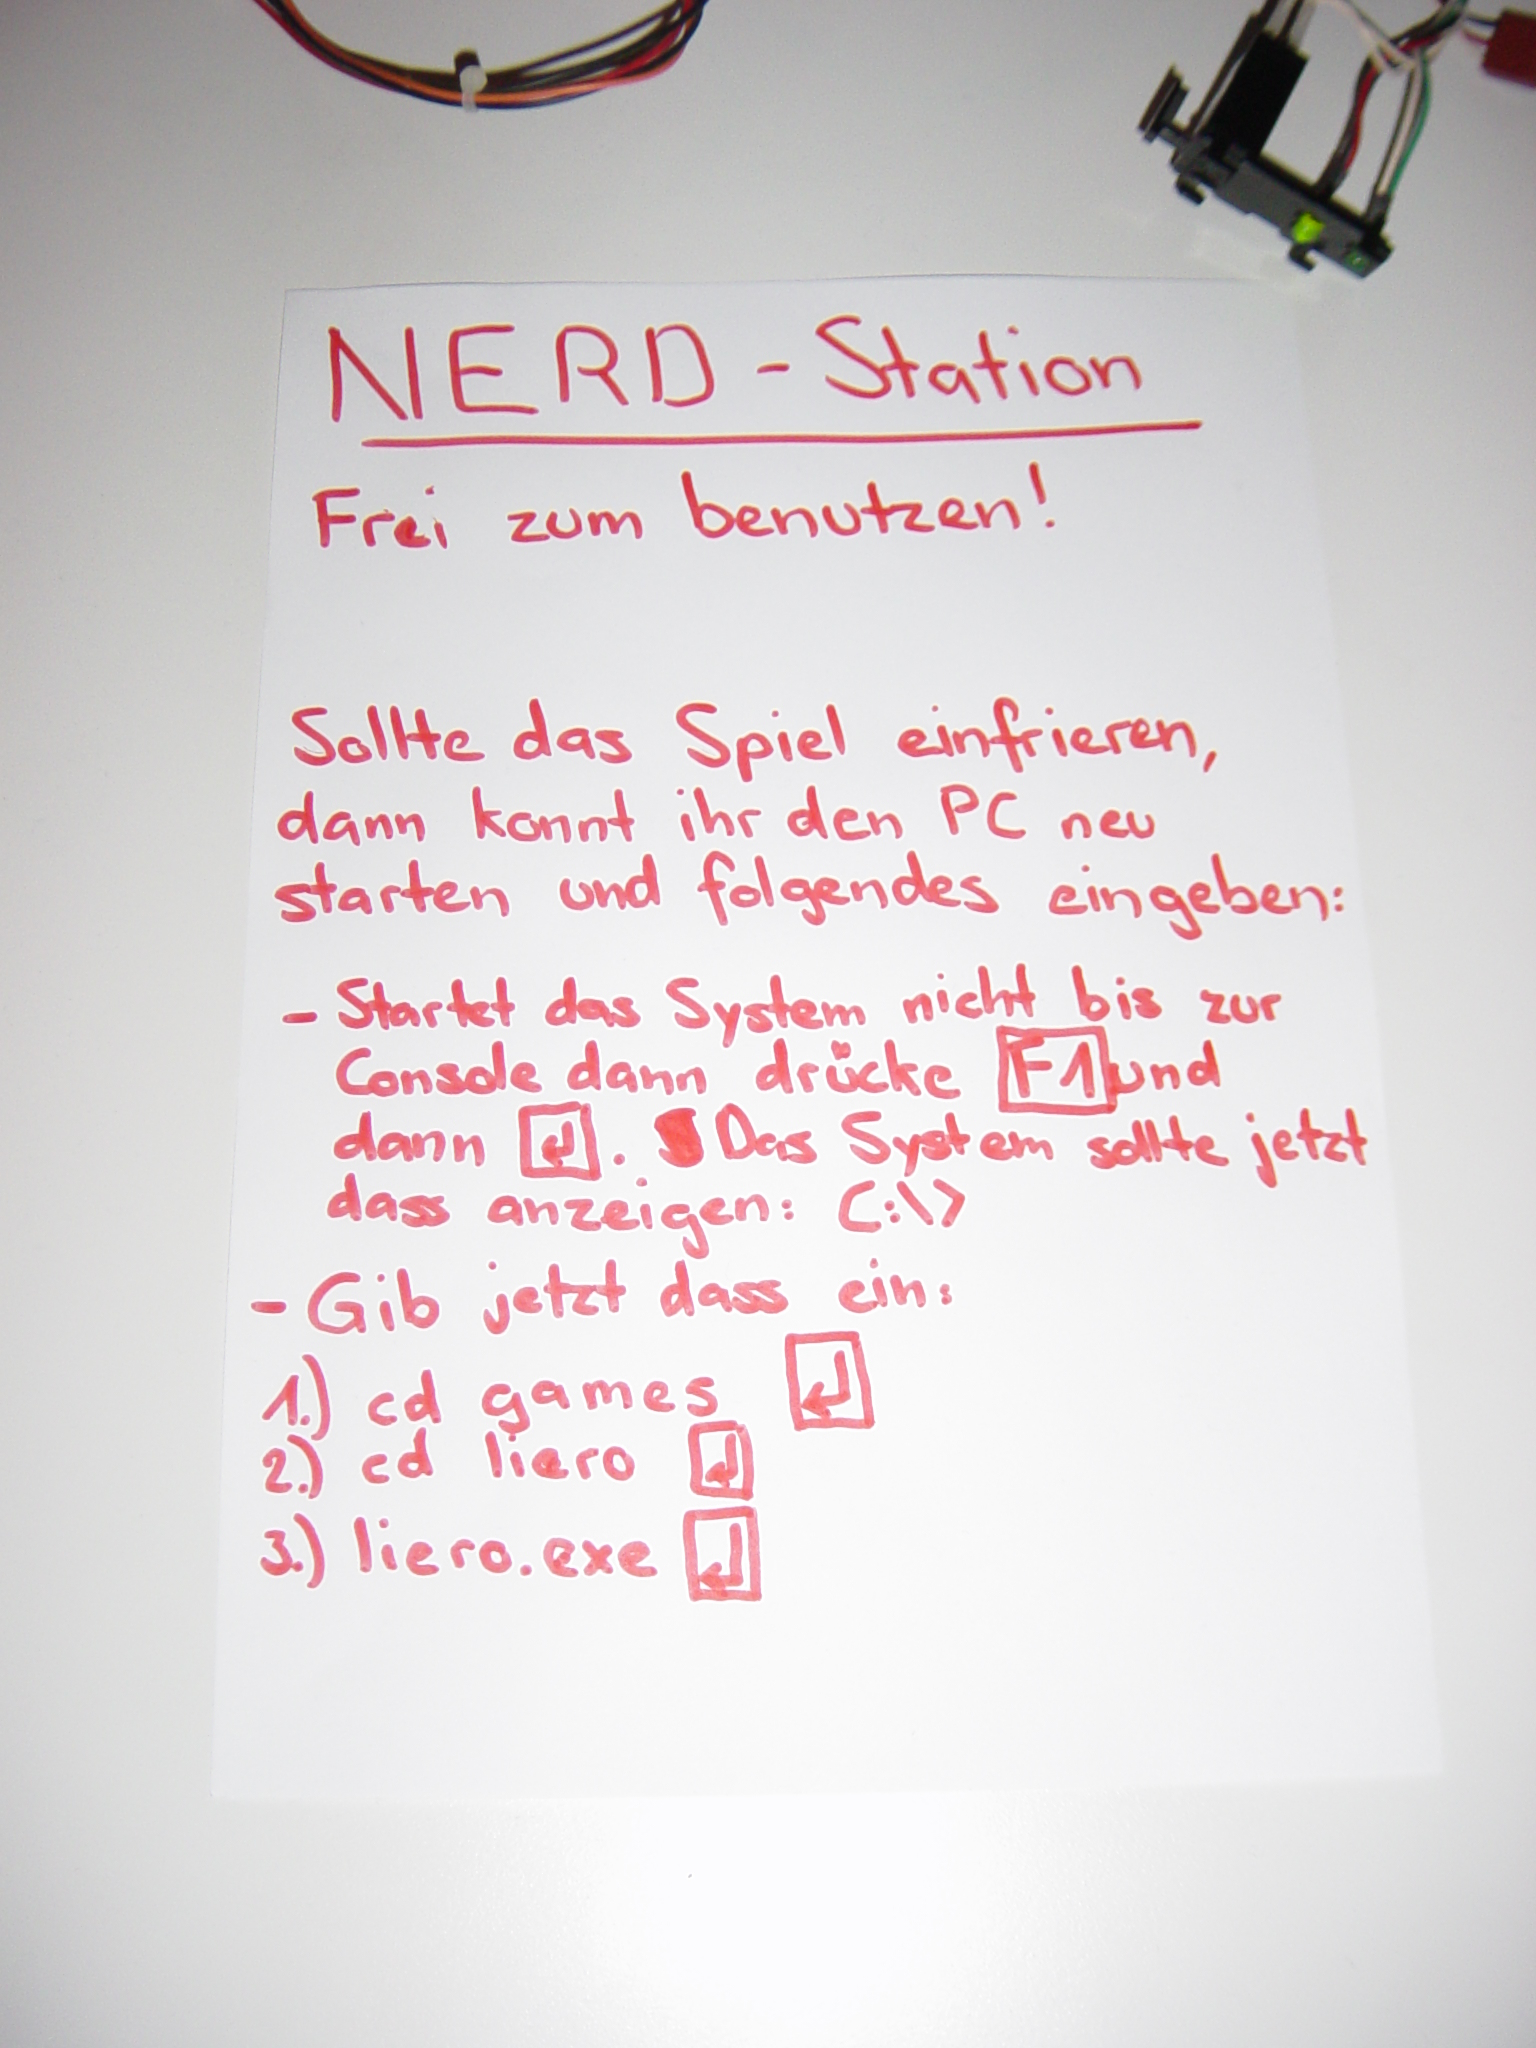 NERD - Station
Frei zum benutzen!
Sollte das Spiel einfrieren,
dann konnt ihr den PC neu
starten und folgendes eingeben:
- Startet das System nicht bis zur
Console dann drücke F1 und
dann ↵. Das System sollte jetzt
dass anzeigen: C:\>
- Gib jetzt dass ein:
1.) cd games ↵
2.) cd liero ↵
3.) liero.exe ↵